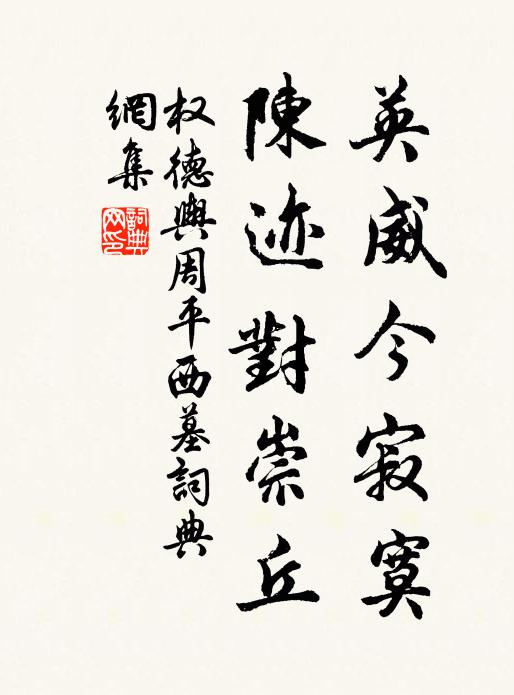 英威今寂寞
陳迹對崇丘
权德輿周平西墓詞典
網集
詞典
网印